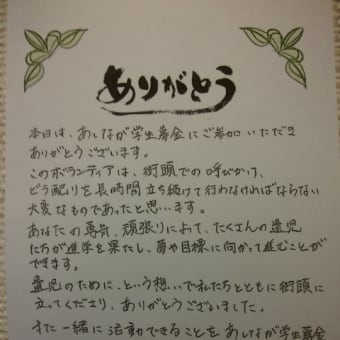 ありがとう
本日は、あしなが学生募金にご参加いただき
ありがとうございます。
このボランティアは、街頭での呼びかけ、
ビラ配りを長時間立ち続けて行わなければならない
大変なものであったと思います。
あなたの勇気、頑張りによって、たくさんの遺児
たちが進学を果たし、夢や目標に向かって進むことが
できます。
遺児のために、という想いで私たちとともに街頭に
立ってくださり、ありがとうございました。
また一緒に活動できることをあしなが学生募金